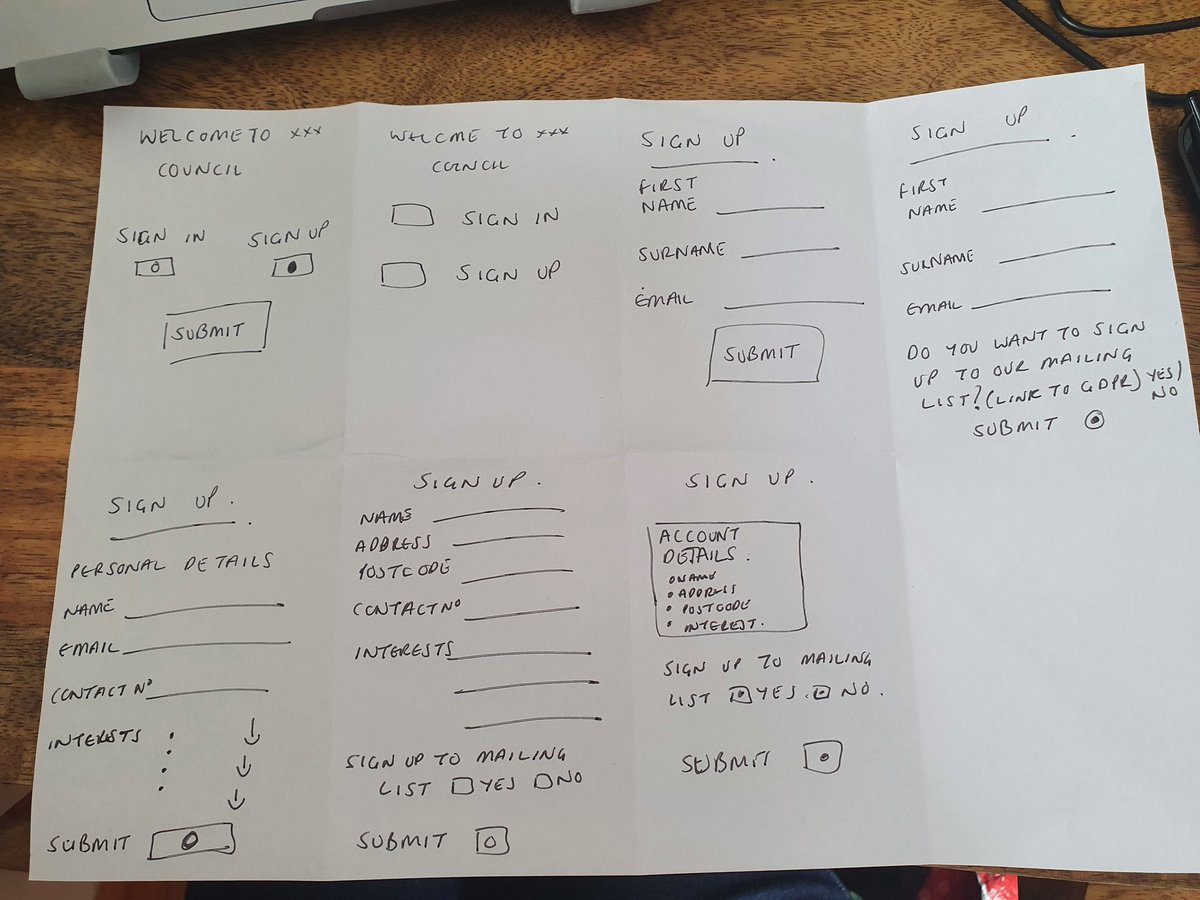 WELCOME TO xxx
COUNCIL
SIGN IN
SIGN UP
SUBMIT
WELCME TO xxx
COUNCIL
SIGN IN
SIGN UP
SIGN UP
FIRST
NAME
SURNAME
EMAIL
SUBMIT
SIGN UP
FIRST
NAME
SURNAME
EMAIL
DO YOU WANT TO SIGN
UP TO OUR MAILING
LIST? (LINK TO GDPR) YES/
NO
SUBMIT
SIGN UP.
PERSONAL DETAILS
NAME
EMAIL
CONTACT NO
INTERSTS
SUBMIT
SIGN UP.
NAME
ADDRESS
POSTCODE
CONTACT NO
INTERESTS
SIGN UP TO MAILING
LIST YES NO
SUBMIT
SIGN UP.
ACCOUNT
DETAILS.
• NAME
• ADDRESS
• POSTCODE
• INTEREST.
SIGN UP TO MAILING
LIST YES. NO.
SUBMIT